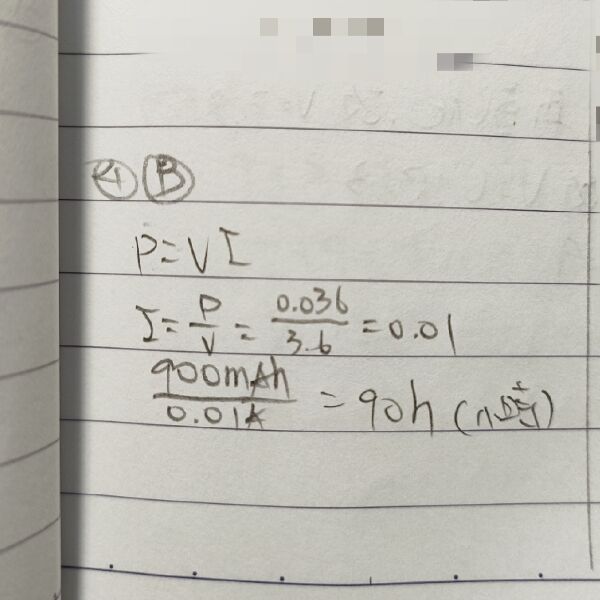 21 B
P=VI
I = P/V = 0.036/3.6 = 0.01
900mAh/0.01A = 90h (小時)